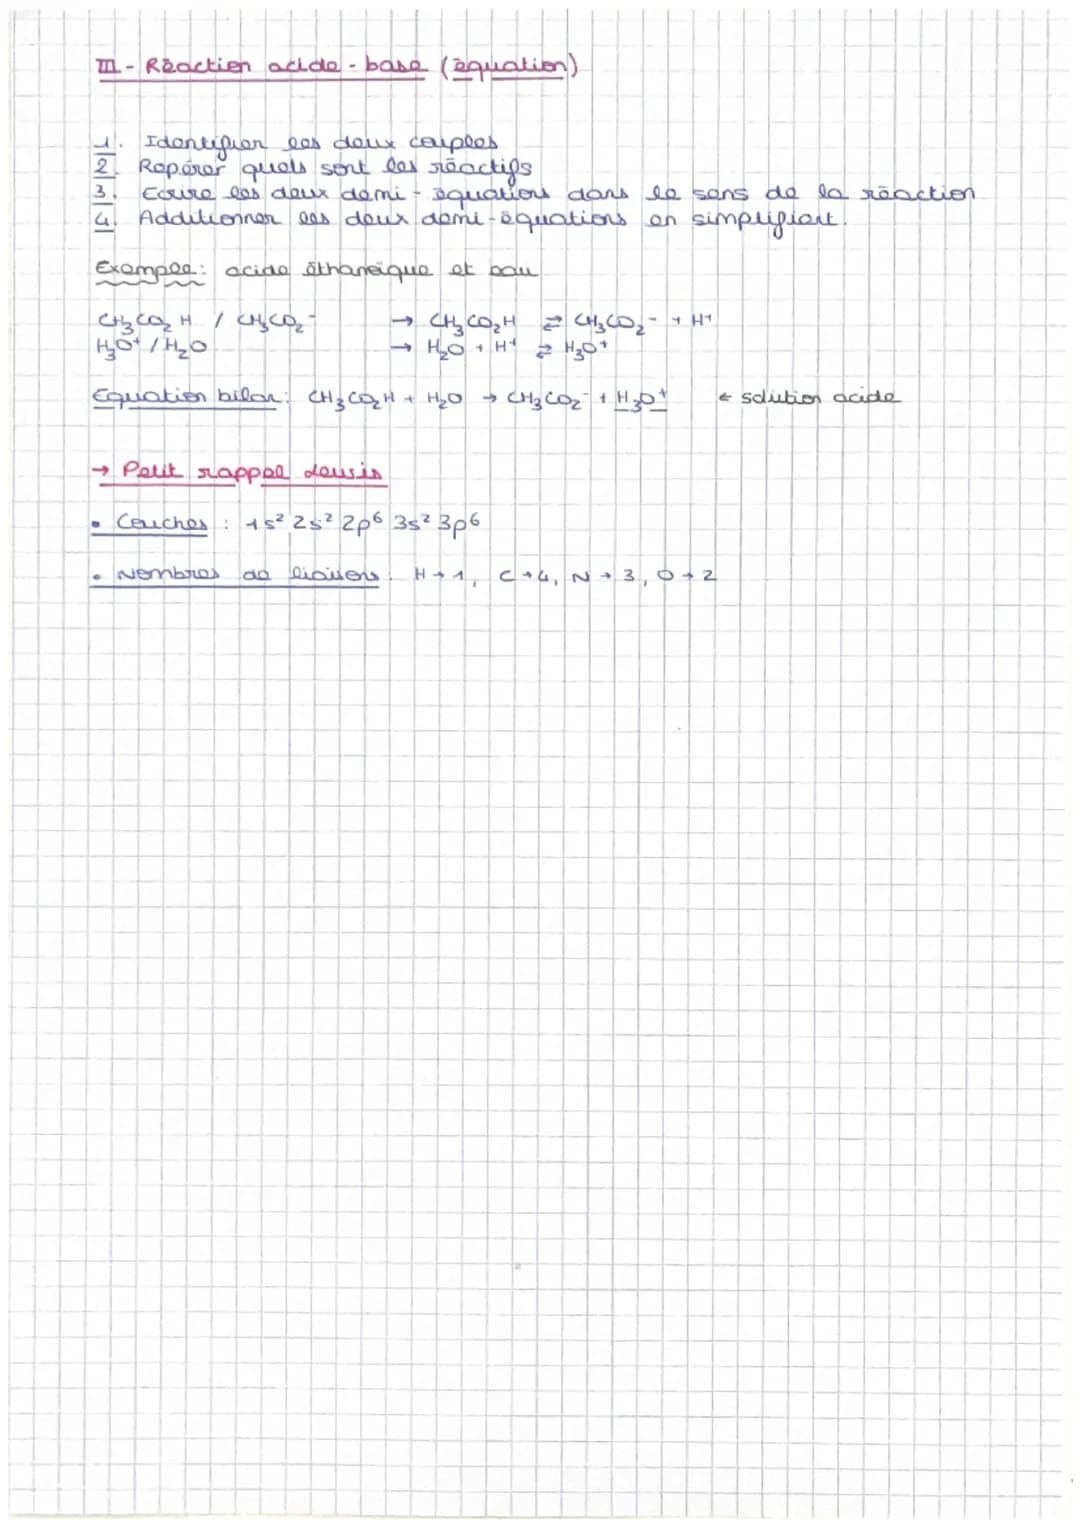 III - Réaction acide - base (équation)
1. Identifier les deux couples
2. Repérer quels sont les réactifs
3. Ecrire les deux demi - équations dans le sens de la réaction
4. Additionner les deux demi-équations en simplifiant.
Exemple : acide éthanoïque et eau
CH₃CO₂H / CH₃CO₂⁻ → CH₃CO₂H ⇄ CH₃CO₂⁻ + H⁺
H₃O⁺ / H₂O → H₂O + H⁺ ⇄ H₃O⁺
Equation bilan : CH₃CO₂H + H₂O → CH₃CO₂⁻ + H₃O⁺ ← solution acide
→ Petit rappel Lewis
• Couches : 1s² 2s² 2p⁶ 3s² 3p⁶
• Nombres de liaisons : H → 1, C → 4, N → 3, O → 2